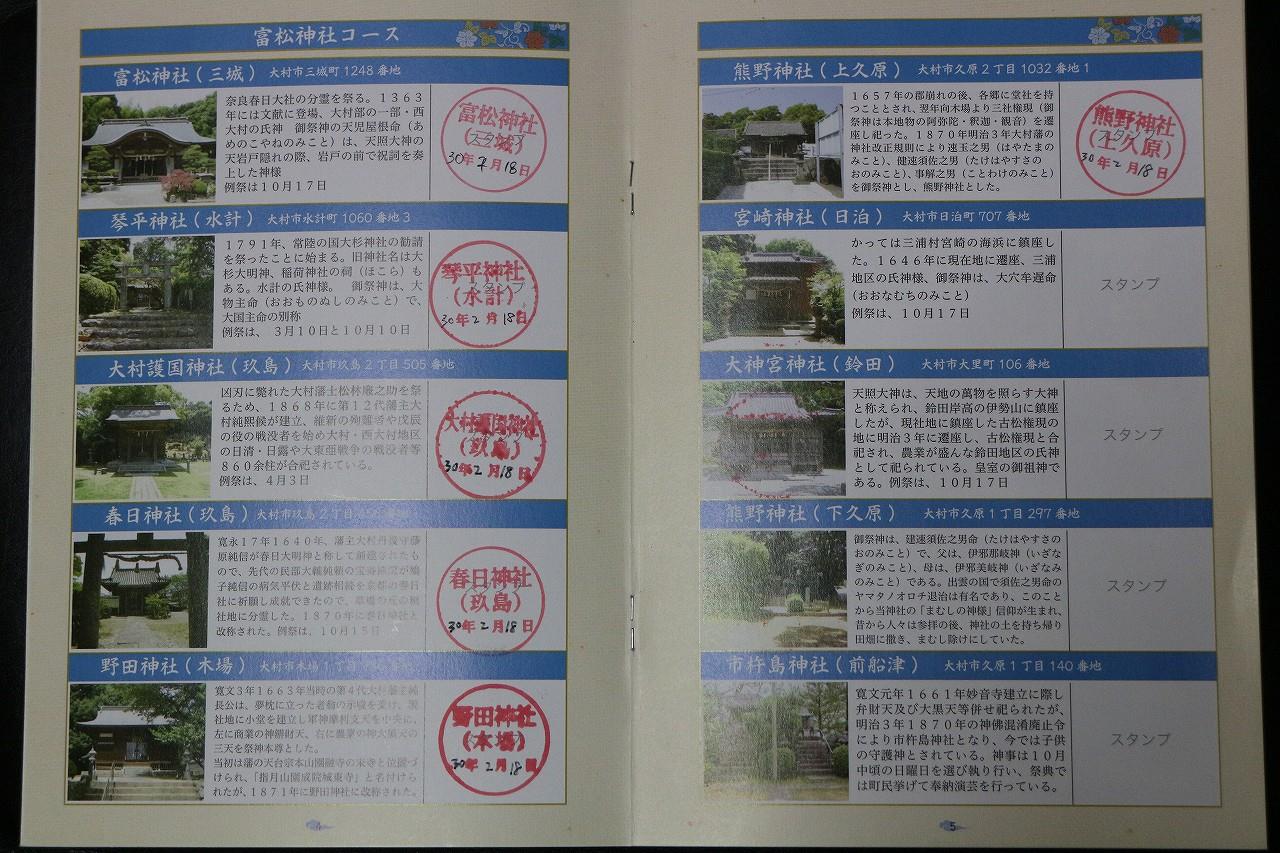 富松神社コース
富松神社(三城) 大村市三城町1248番地
奈良春日大社の分霊を祭る。1363
年には文献に登場、大村部の一部・西
大村の氏神 御祭神の天児屋根命(あ
めのこやねのみこと)は、天照大神の
天岩戸隠れの際、岩戸の前で祝詞を奏
上した神様
例祭は10月17日
富松神社
(三城)
30年 2月18日
琴平神社(水計) 大村市水計町1060番地3
1791年、常陸の国大杉神社の勧請
を祭ったことに始まる。旧神社名は大
杉大明神、稲荷神社の祠(ほこら)も
ある。水計の氏神様。 御祭神は、大
物主命(おおものぬしのみこと)で、
大国主命の別称
例祭は、3月10日と10月10日
琴平神社
(水計)
30年 2月18日
大村護国神社(玖島) 大村市玖島2丁目505番地
凶刃に斃れた大村藩士松林廉之助を祭
るため、1868年に第12代藩主大
村純熙候が建立、維新の殉難者や戊辰
の役の戦没者を始め大村・西大村地区
の日清・日露や大東亜戦争の戦没者等
860余柱が合祀されている。
例祭は、4月3日
大村護国神社
(玖島)
30年2月18日
春日神社(玖島) 大村市玖島2丁目
寛永17年1640年、藩主大村丹後守藤
原純信が春日大明神と称して創建されたも
ので、先代の民部大輔純頼の
子純信の病気平伏と遺跡相続を京都の春日
社に祈願し成就できたので、
社地に分霊した。1870年に春日神社と
改称された。例祭は、10月15日
春日神社
(玖島)
30年2月18日
野田神社(木場) 大村市木場1丁目
寛文3年1663年当時の第4代大村藩主純
長公は、夢枕に立った老翁の示現を受け、現
社地に小堂を建立し軍神摩利支天を中央に、
左に商業の神辨財天、右に農業の神大黒天の
三天を祭神本尊とした。
当初は藩の天台宗本山圓融寺の末寺と位置づ
けられ、「指月山圓成院城東寺」と名付けら
れたが、1871年に野田神社に改称された。
野田神社
(木場)
30年2月18日
4
熊野神社(上久原) 大村市久原2丁目1032番地1
1657年の郡崩れの後、各郷に堂社を持
つこととされ、翌年向木場より三社権現(御
祭神は本地物の阿弥陀・釈迦・観音)を遷
座し祀った。1870年明治3年大村藩の
神社改正規則により速玉之男(はやたまの
みこと)、健速須佐之男(たけはやすさの
おのみこと)、事解之男(ことわけのみこと)
を御祭神とし、熊野神社とした。
熊野神社
(上久原)
30年2月18日
宮崎神社(日泊) 大村市日泊町707番地
かっては三浦村宮崎の海浜に鎮座し
た。1646年に現在地に遷座、三浦
地区の氏神様、御祭神は、大穴牟遅命
(おおなむちのみこと)
例祭は、10月17日
スタンプ
大神宮神社(鈴田) 大村市大里町106番地
天照大神は、天地の萬物を照らす大神
と称えられ、鈴田岸高の伊勢山に鎮座
したが、現社地に鎮座した古松権現の
地に明治3年に遷座し、古松権現と合
祀され、農業が盛んな鈴田地区の氏神
として祀られている。皇室の御祖神で
ある。例祭は、10月17日
スタンプ
熊野神社(下久原) 大村市久原1丁目297番地
御祭神は、建速須佐之男命(たけはやすさの
おのみこと)で、父は、伊邪那岐神(いざな
ぎのみこと)、母は、伊邪美岐神(いざなみ
のみこと)である。出雲の国で須佐之男命の
ヤマタノオロチ退治は有名であり、このこと
から当神社の「まむしの神様」信仰が生まれ、
昔から人々は参拝の後、神社の土を持ち帰り
田畑に撒き、まむし除けにしていた。
スタンプ
市杵島神社(前船津) 大村市久原1丁目140番地
寛文元年1661年妙音寺建立に際し
弁財天及び大黒天等併せ祀られたが、
明治3年1870年の神佛混淆廃止令
により市杵島神社となり、今では子供
の守護神とされている。神事は10月
中頃の日曜日を選び執り行い、祭典で
は町民挙げて奉納演芸を行っている。
スタンプ
5